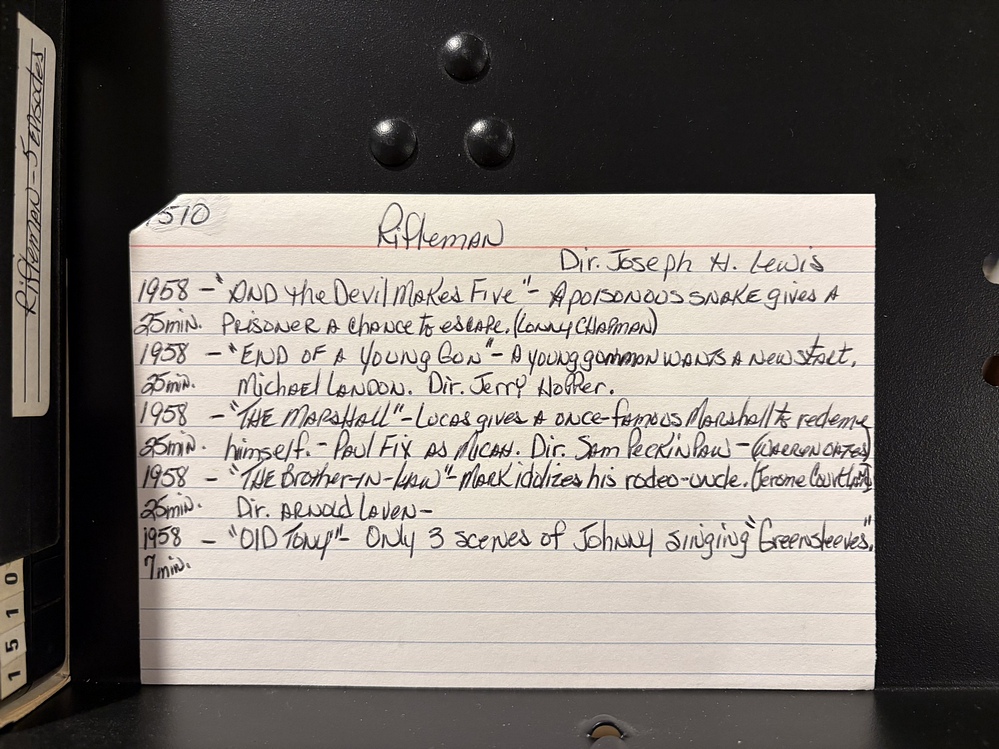 Rifleman - 5 Episodes
1510
1510
Rifleman
Dir. Joseph H. Lewis
1958 - "AND the Devil Makes Five" - A poisonous snake gives A
25min. Prisoner A chance to escape. (Lonny Chapman)
1958 - "END OF A YOUNG GUN" - A young gunman wants a new start.
25min. Michael Landon. Dir. Jerry Hopper.
1958 - "THE MARSHALL" - Lucas gives A once-famous Marshall to redeme
25min. himself. - Paul Fix as Micah. Dir. Sam Peckinpaw - (Warren Oates)
1958 - "THE Brother-IN-Law" - Mark idolizes his rodeo-uncle. (Jerome Courtland)
25min. Dir. Arnold Laven -
1958 - "OlD Tony" - Only 3 scenes of Johnny singing "Greensleeves."
7min.